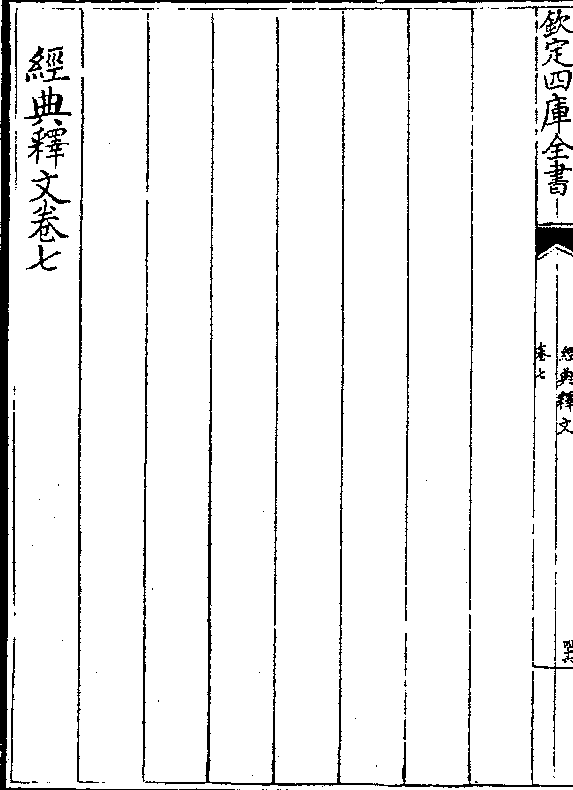 欽定四庫全書
經典釋文
卷七
經典釋文卷七